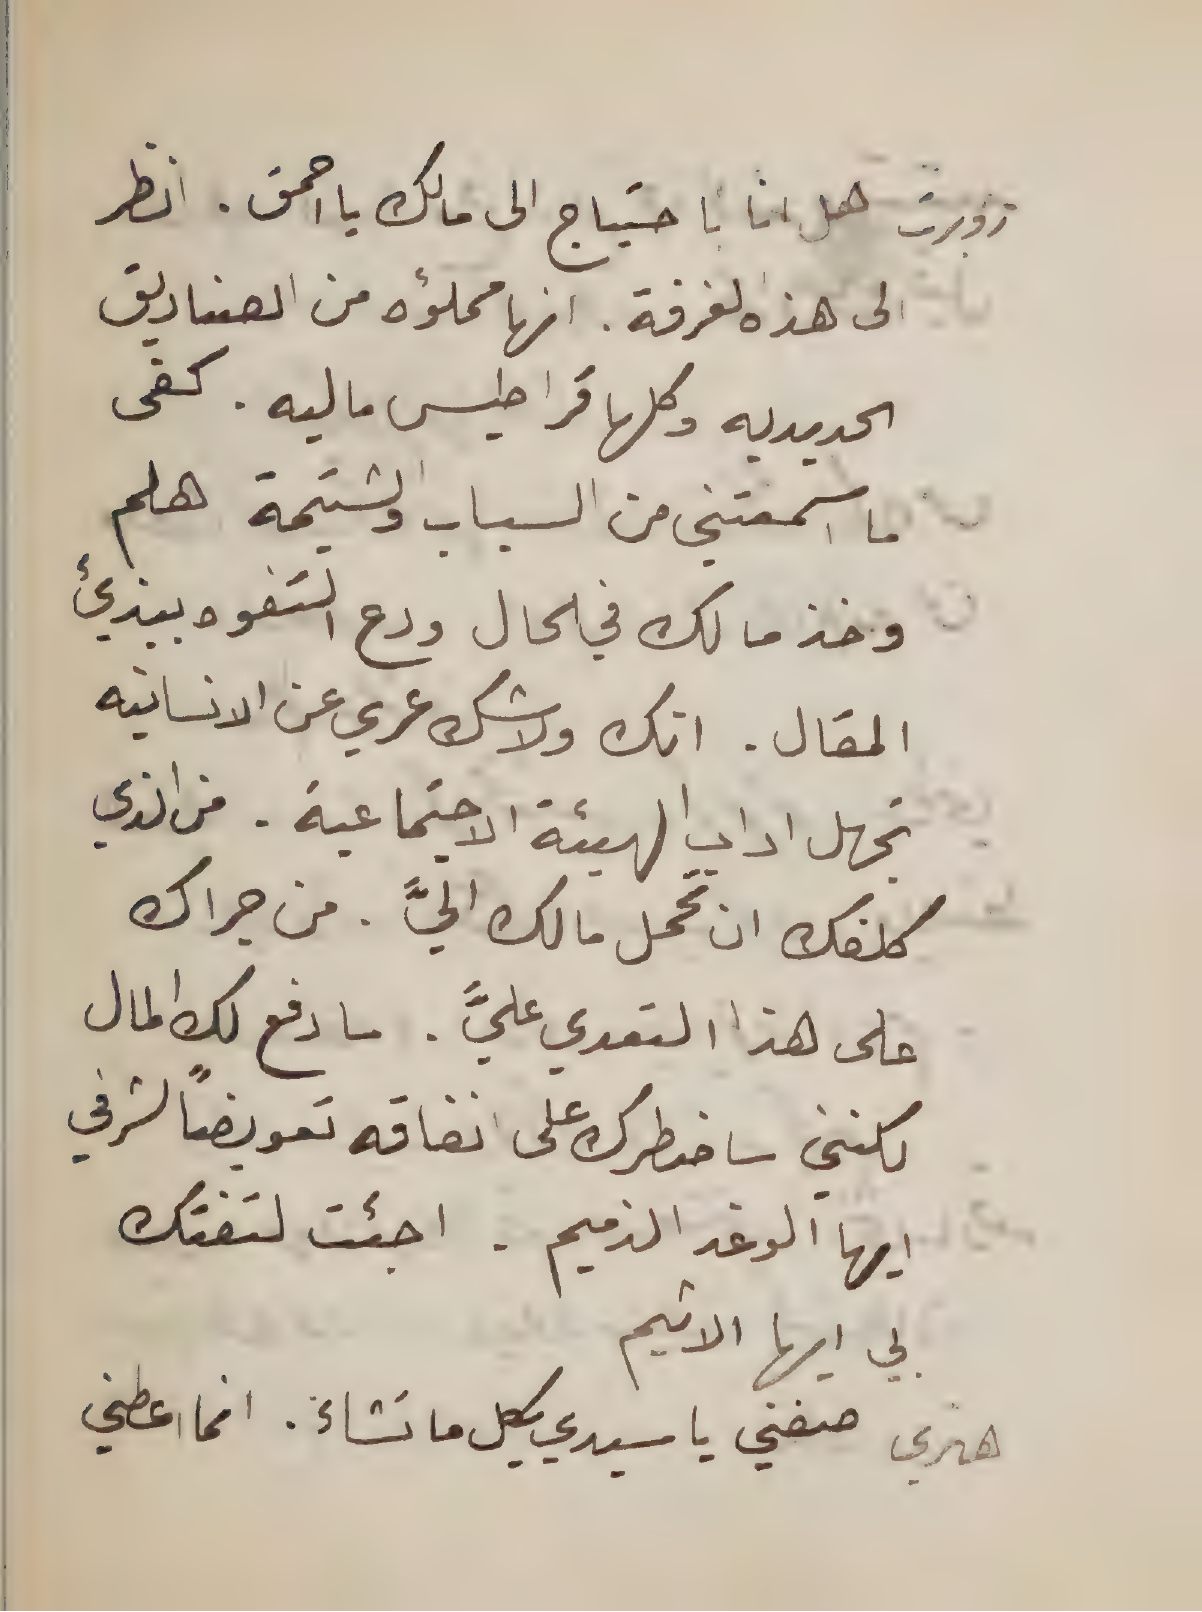 روبرت هل انا باحتياج الى مالك يا احمق . انظر
الى هذه الغرفة . انها مملوُه من الصناديق
الحديديه وكلها قراطيس ماليه . كفى
ما اسمعتني من السباب والشتيمة هلم
وخذ مالك في الحال ودع التفوه ببذيئ
المقال . انك ولا شك عري عن الانسانيه
تجهل اداب الهيئة الاجتماعية . من الذي
كلفك ان تحمل مالك اليَّ . من جراك
على هذا التعدي عليَّ . سادفع لك المال
لكنني ساضطرك على انفاقه تعويضاً لشرفي
ايها الوغد الذميم . اجئت لتفتك
بي ايها الاثيم
هنري صفني يا سيدي بكل ما تشاء . انما اعطني